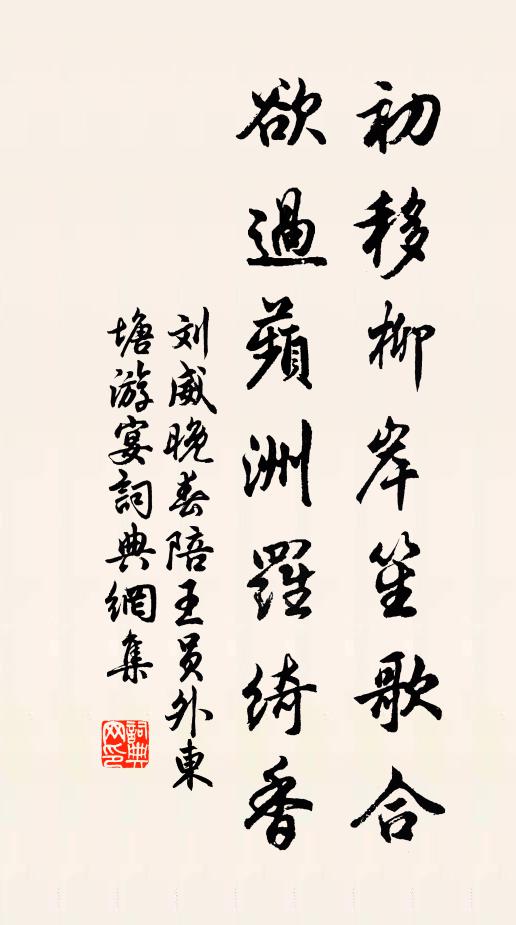 初移柳岸笙歌合
欲過蘋洲羅綺香
刘威晚春陪王員外東
塘游宴詞典網集
詞典
网印